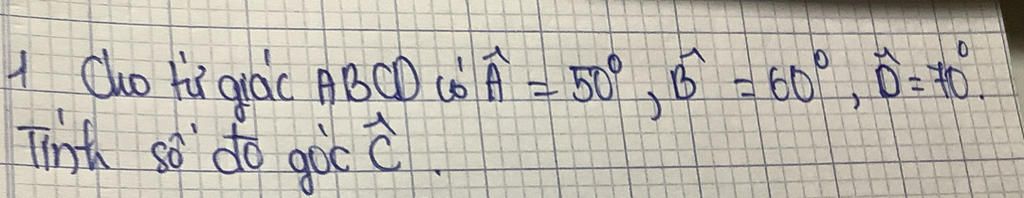 1 Cho tứ giác ABCD có Â = 50°, B̂ = 60°, D̂ = 70°.
Tính số đo góc Ĉ.